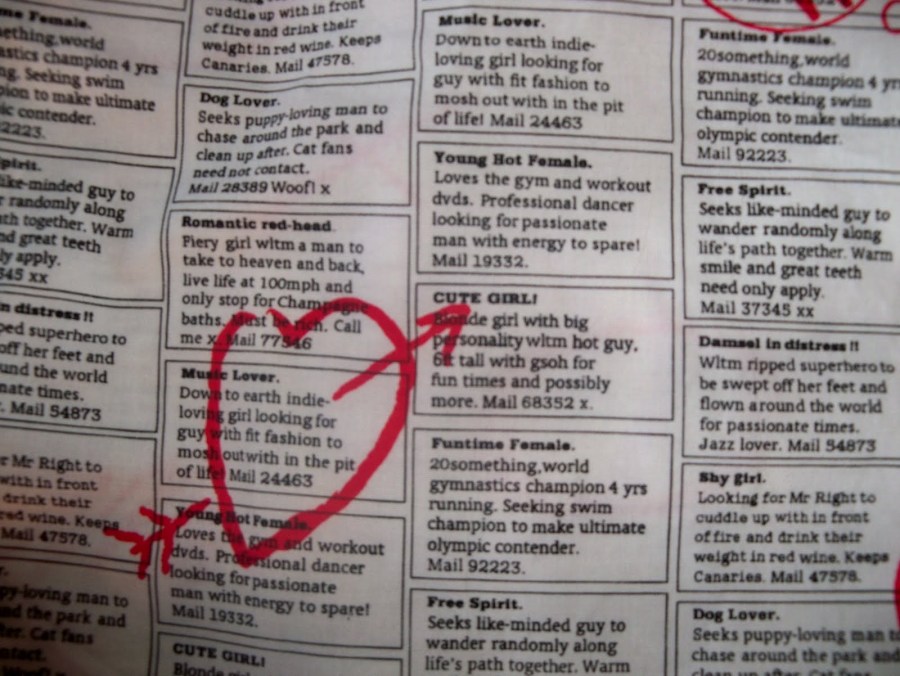 me Female.
ething,world
astics champion 4 yrs
ng. Seeking swim
pion to make ultimate
ic contender.
2223.
pirit.
ike-minded guy to
r randomly along
th together. Warm
nd great teeth
ly apply.
345 xx
n distress !!
ped superhero to
off her feet and
und the world
nate times.
. Mail 54873
r Mr Right to
with in front
drink their
red wine. Keeps
Mail 47578.
r.
py-loving man to
nd the park and
ter. Cat fans
ntact.
cuddle up with in front
of fire and drink their
weight in red wine. Keeps
Canaries. Mail 47578.
Dog Lover.
Seeks puppy-loving man to
chase around the park and
clean up after. Cat fans
need not contact.
Mail 28389 Woof! x
Romantic red-head.
Fiery girl wltm a man to
take to heaven and back,
live life at 100mph and
only stop for Champagne
baths. Must be rich. Call
me x. Mail 77546
Music Lover.
Down to earth indie-
loving girl looking for
guy with fit fashion to
mosh out with in the pit
of life! Mail 24463
Young Hot Female.
Loves the gym and workout
dvds. Professional dancer
looking for passionate
man with energy to spare!
Mail 19332.
CUTE GIRL!
Blonde girl
Music Lover.
Down to earth indie-
loving girl looking for
guy with fit fashion to
mosh out with in the pit
of life! Mail 24463
Young Hot Female.
Loves the gym and workout
dvds. Professional dancer
looking for passionate
man with energy to spare!
Mail 19332.
CUTE GIRL!
Blonde girl with big
personality wltm hot guy,
6ft tall with gsoh for
fun times and possibly
more. Mail 68352 x.
Funtime Female.
20something,world
gymnastics champion 4 yrs
running. Seeking swim
champion to make ultimate
olympic contender.
Mail 92223.
Free Spirit.
Seeks like-minded guy to
wander randomly along
life's path together. Warm
Funtime Female.
20something,world
gymnastics champion 4 yr
running. Seeking swim
champion to make ultimate
olympic contender.
Mail 92223.
Free Spirit.
Seeks like-minded guy to
wander randomly along
life's path together. Warm
smile and great teeth
need only apply.
Mail 37345 xx
Damsel in distress !!
Wltm ripped superhero to
be swept off her feet and
flown around the world
for passionate times.
Jazz lover. Mail 54873
Shy girl.
Looking for Mr Right to
cuddle up with in front
of fire and drink their
weight in red wine. Keeps
Canaries. Mail 47578.
Dog Lover.
Seeks puppy-loving man to
chase around the park and
clean up after. Cat fans